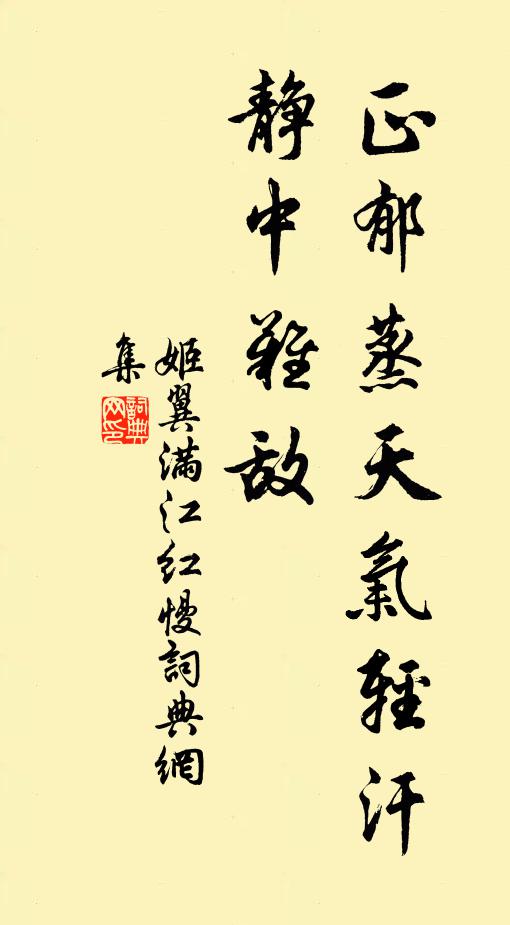 正郁蒸天氣輕汗
静中難敌
姬翼满江红慢詞典網
集
詞典网印